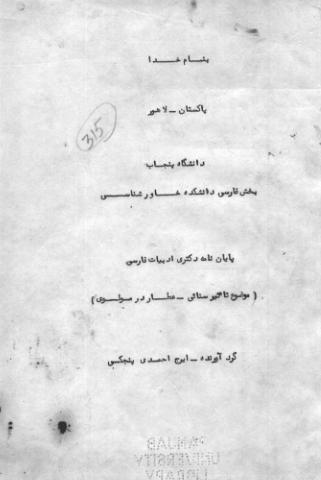 بنام خدا
پاکستان - لاهور
315
دانشگاه پنجاب
بخش فارسی دانشکده خاور شناسی
پایان نامه دکتری ادبیات فارسی
( موضوع تاثیر سنائی - عطار در مولوی )
گرد آورنده - ایرج احمدی پنجکس
PANJAB
UNIVERSITY
LIBRARY